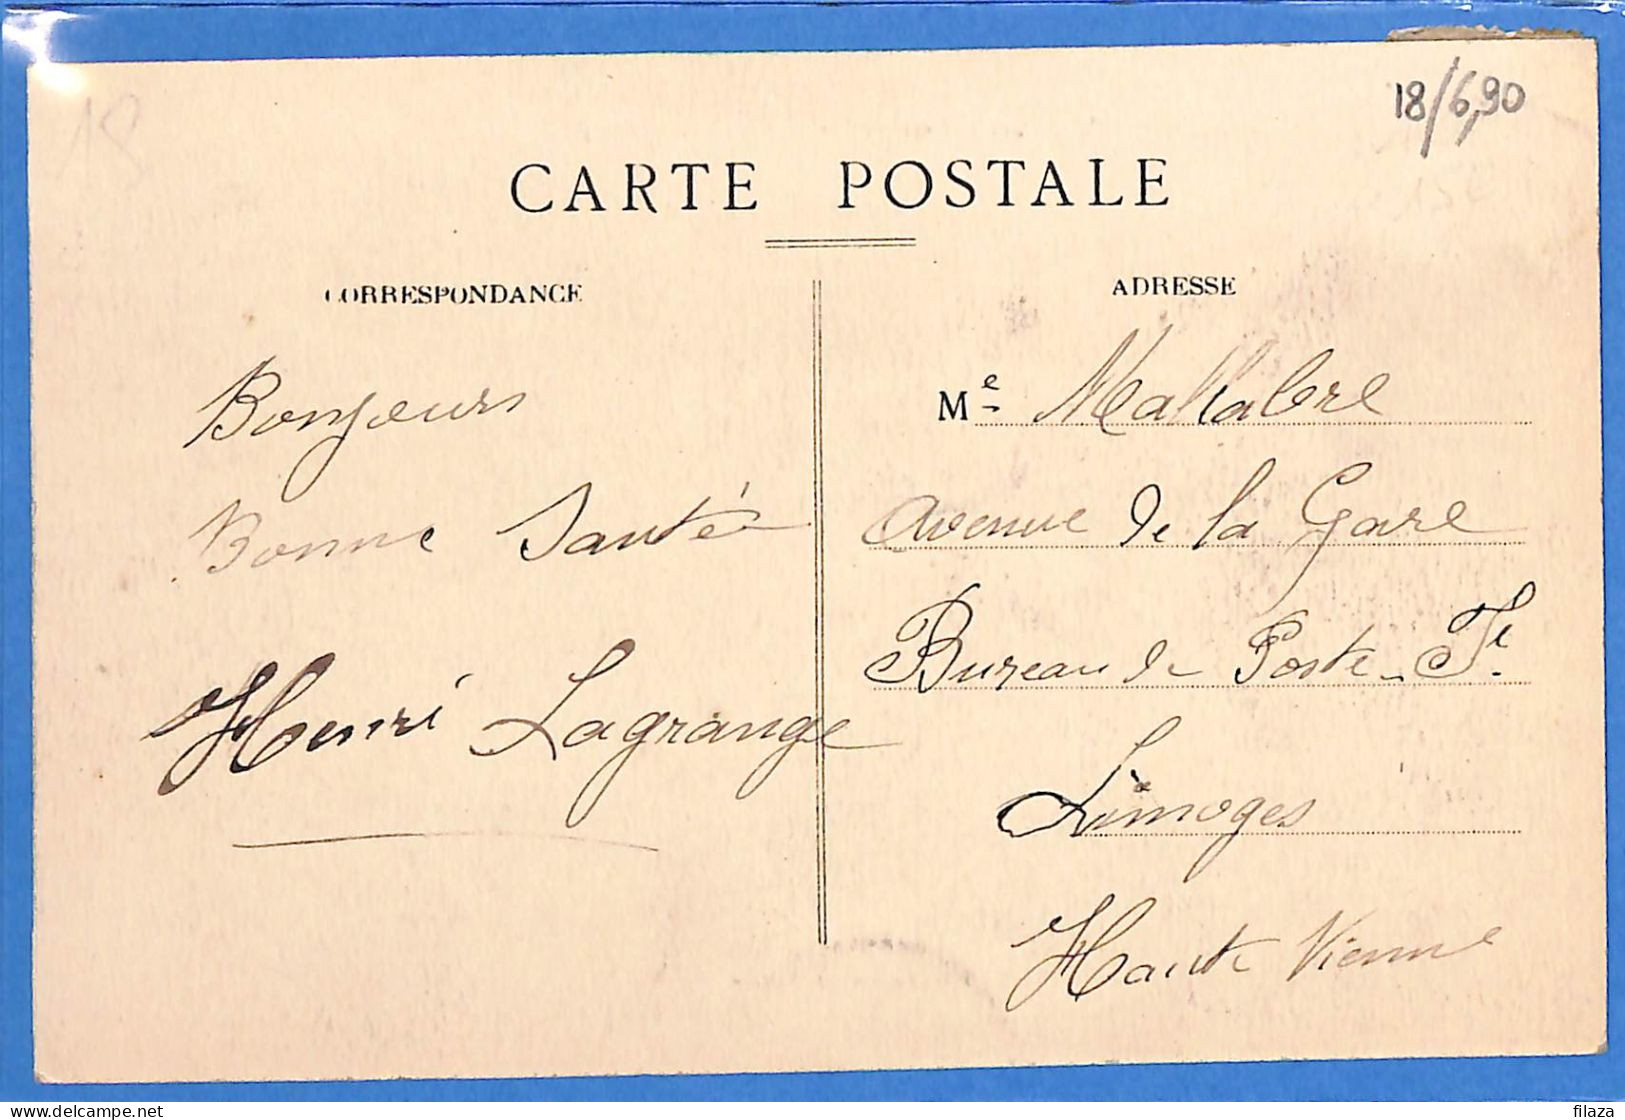 18
18/6,90
CARTE POSTALE
CORRESPONDANCE
Bonjours
Bonne Santé
Henri Lagrange
ADRESSE
Me Mallabre
avenue de la Gare
Bureau de Poste
Limoges
Haute Vienne
delcampe.net
filaza